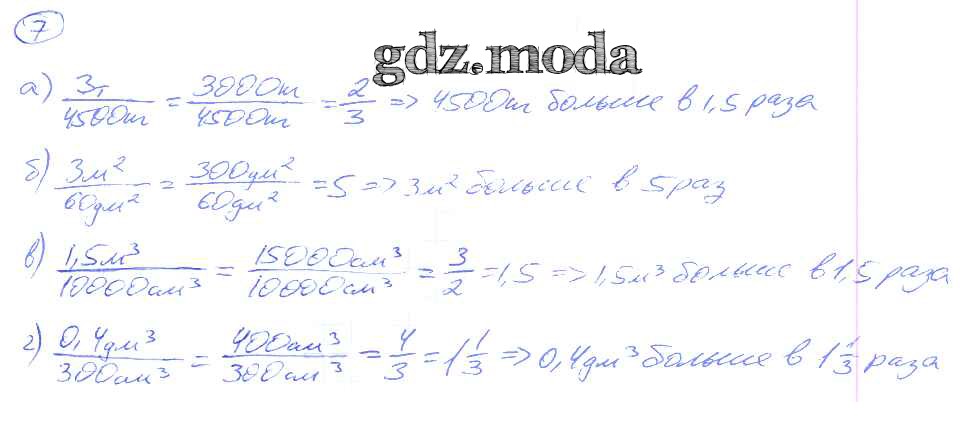 7
gdz.moda
а) 3т/4500кг = 3000кг/4500кг = 2/3 => 4500кг больше в 1,5 раза
б) 3м²/60дм² = 300дм²/60дм² = 5 => 3м² больше в 5 раз
в) 1,5м³/10000см³ = 15000см³/10000см³ = 3/2 = 1,5 => 1,5м³ больше в 1,5 раза
г) 0,4дм³/300см³ = 400см³/300см³ = 4/3 = 1 1/3 => 0,4дм³ больше в 1 1/3 раза